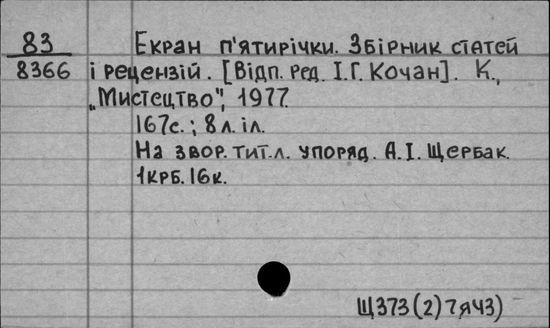 83 Екран п'ятирічки. Збірник статей
8366 і рецензій. [Відп. ред. І.Г. Кочан]. К.,
„Мистецтво", 1977.
167с.; 8 л. іл.
На звор. тит. л. упоряд. А.І. Щербак.
1крб. 16к.
Щ373(2)7я43)